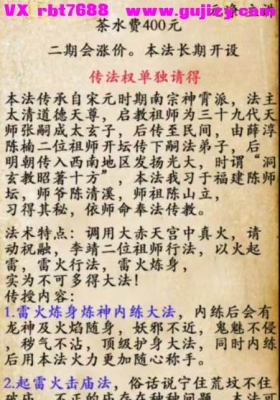 VX rbt7688 www.gujizy.com
茶水费400元
二期会涨价。本法长期开设
传法权单独请得
本法传承自宋元时期南宗神霄派，法主
太清道德天尊，启教祖师为三十九代天
师张嗣成太玄子，后传至民间，由薛淳
陈楠二位祖师开坛传下嗣法弟子，后
明朝传入西南地区发扬光大，时谓“洞
玄教昭著十方”，本法我习于福建陈师
坛，师爷陈清溪，师祖陈山立，
习得其秘，依师命奉法传教。
法术特点：调用大赤天宫中真火，请
动祝融，李靖二位祖师行法，以火起
雷，雷火行法，雷火炼身，
实为不可多得大法！
传授内容：
1.雷火炼身炼神内练大法，内练后会有
龙神及火焰随身，妖邪不近，鬼魅不侵
，秽气不沾，顶级护身大法，同时内练
后用本法火力更加随心称手。
2.起雷火击庙法，俗话说宁住荒坟不住